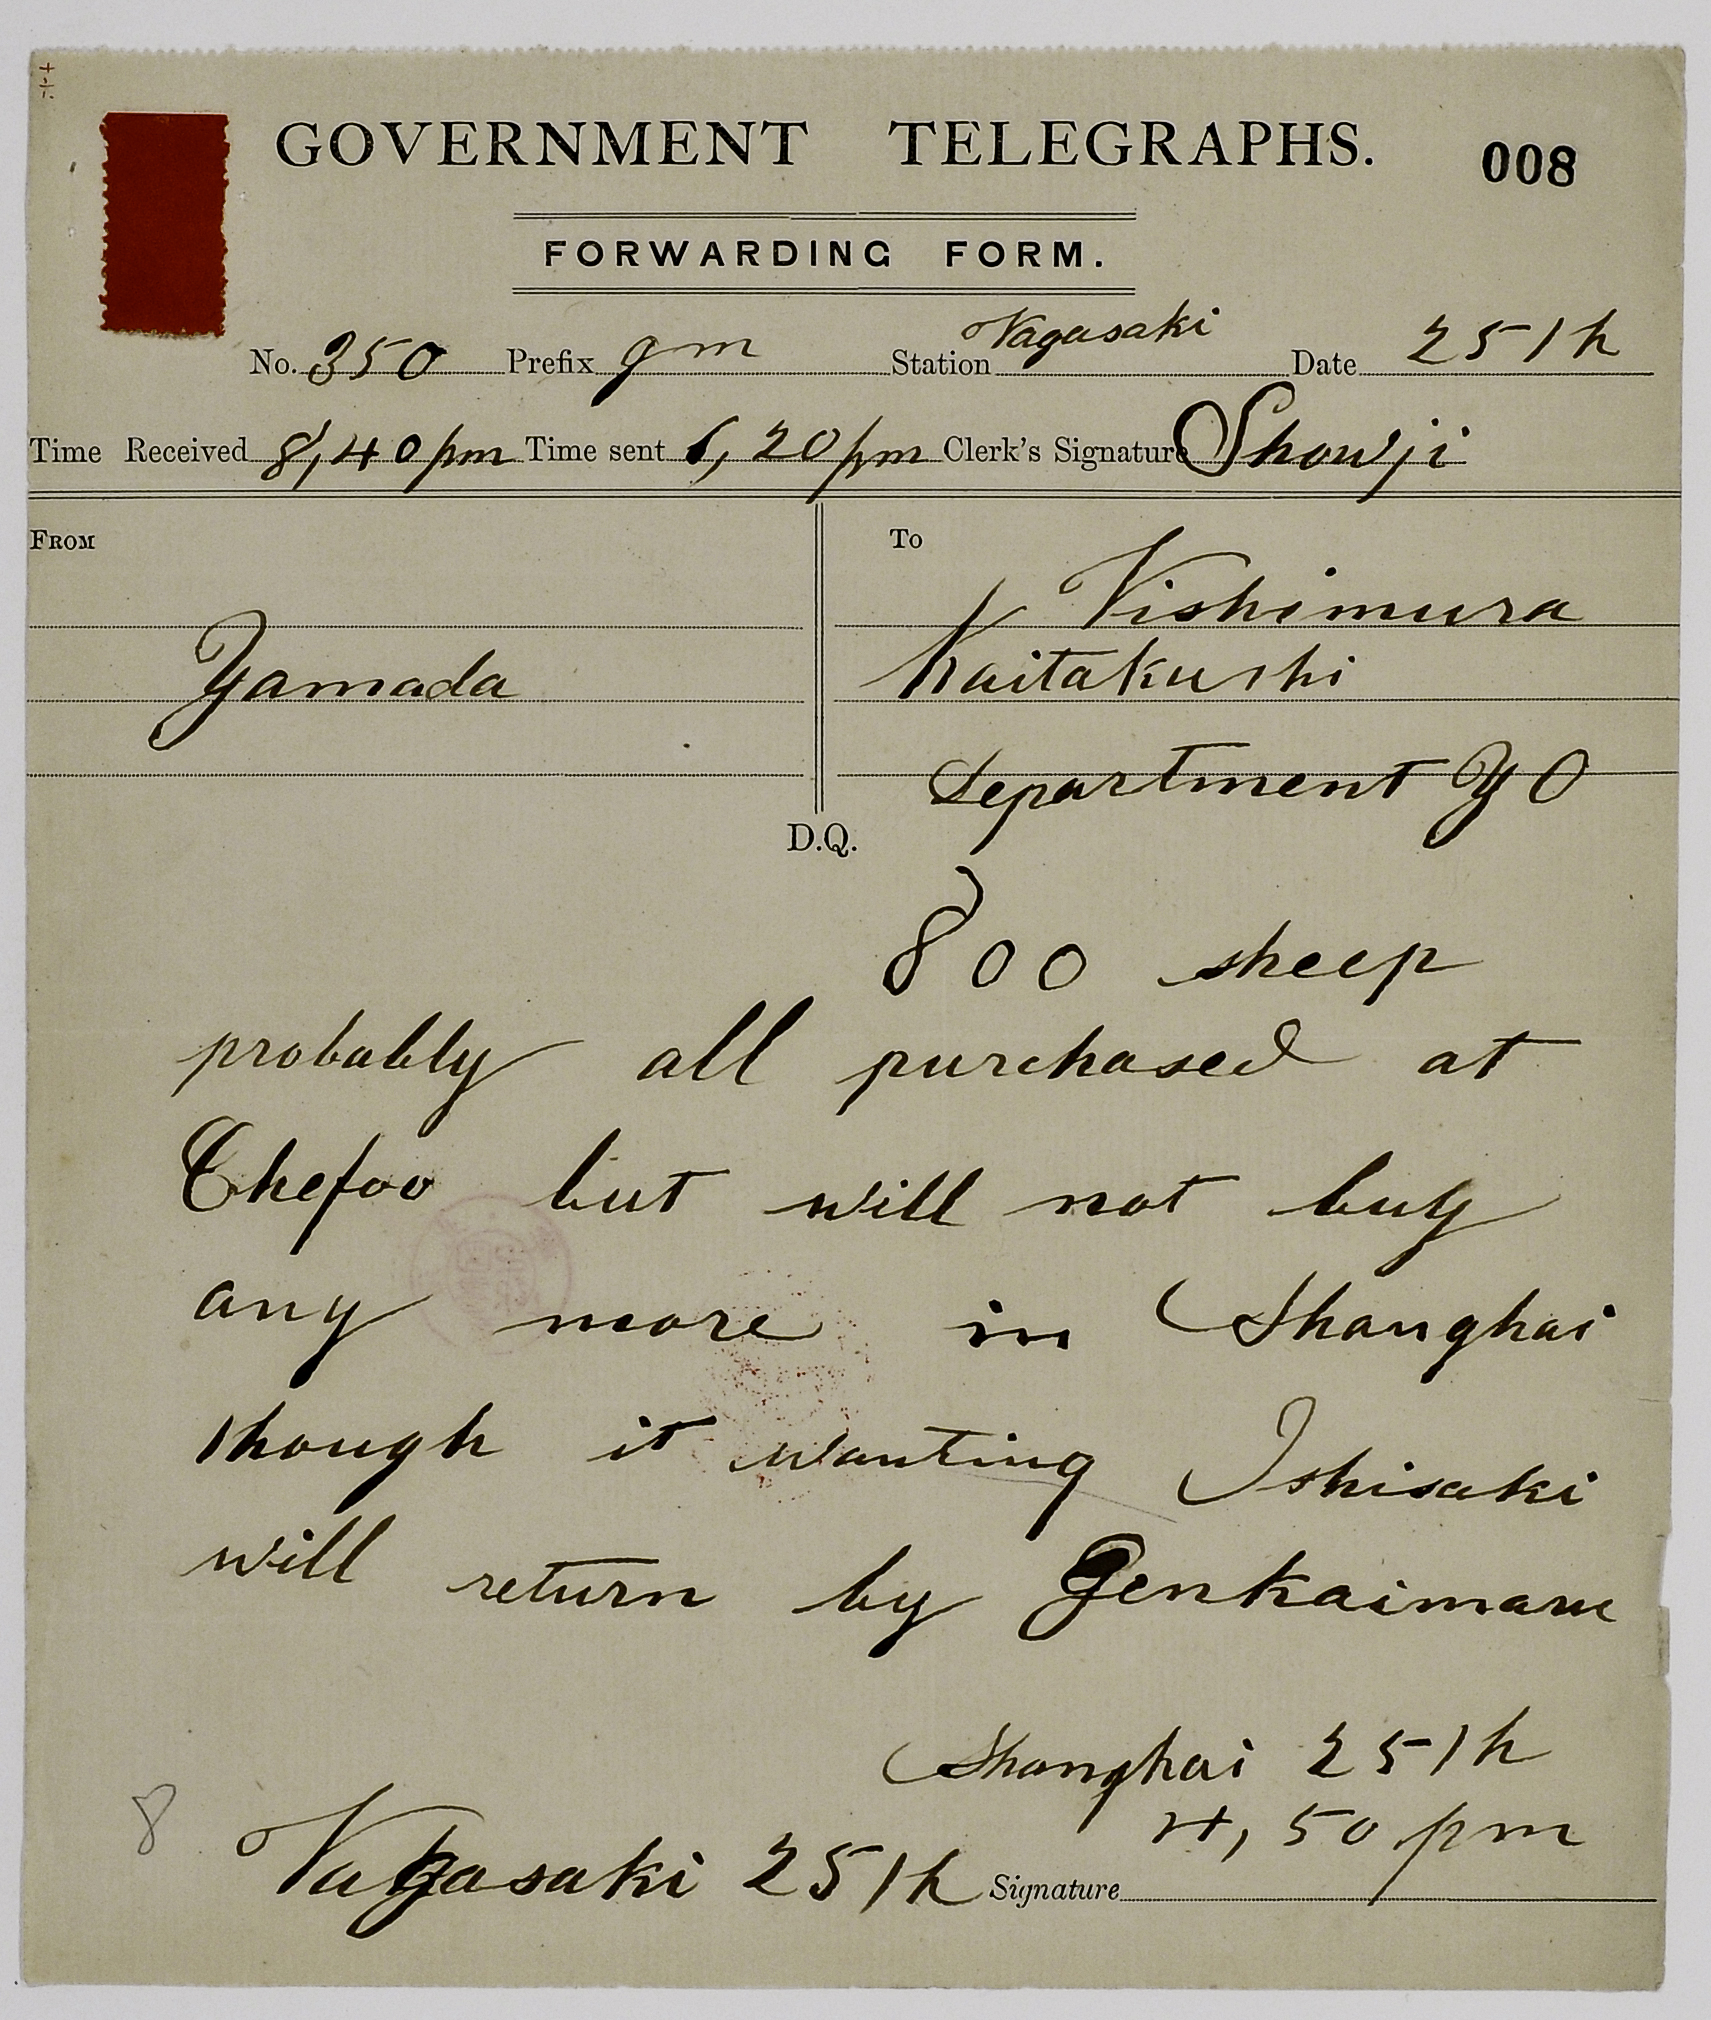 GOVERNMENT TELEGRAPHS. 008
FORWARDING FORM.
No. 350 Prefix gm Station Nagasaki Date 25th
Time Received 8,40pm Time sent 6,20pm Clerk's Signature Showji
FROM To
Nishimura
Yamada Kaitakushi
Department YO
D.Q.
800 sheep
probably all purchased at
Chefoo but will not buy
any more in Shanghai
though it wanting Ishisaki
will return by Genkaimaru
Shanghai 25th
4,50 pm
8
Nagasaki 25th Signature